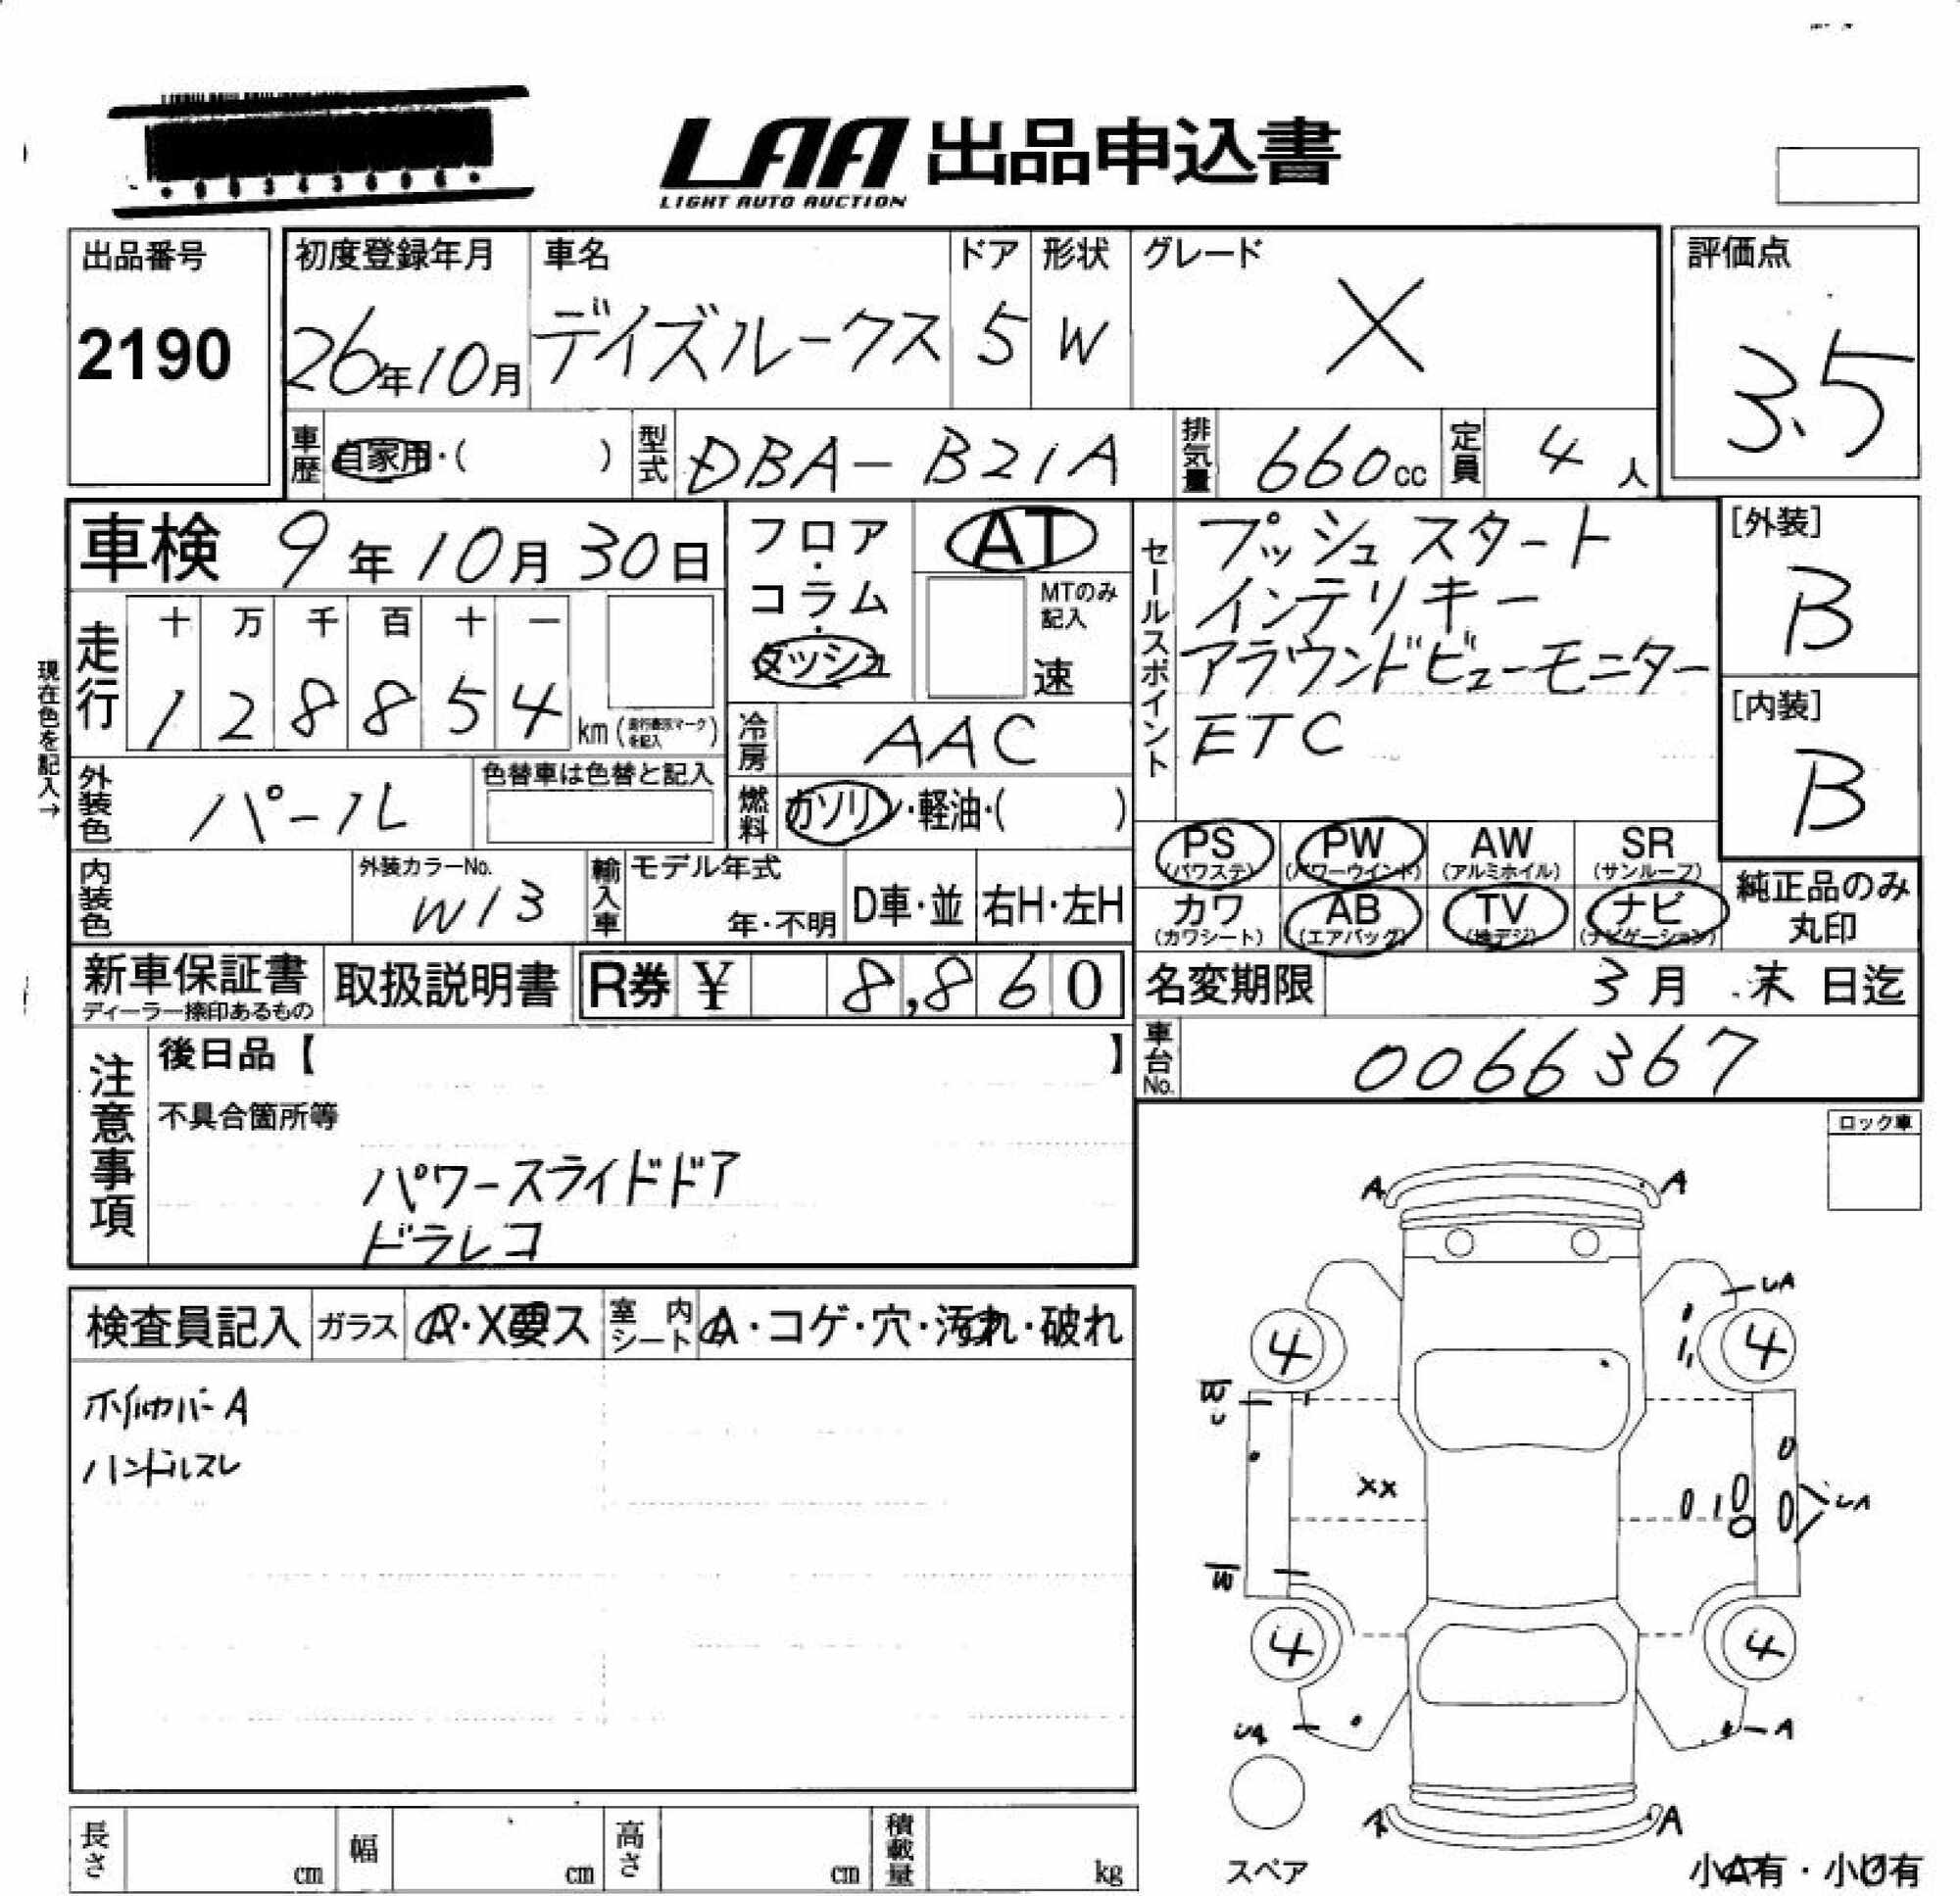 LAA 出品申込書
LIGHT AUTO AUCTION
出品番号
2190
初度登録年月
26年10月
車名
デイズルークス
ドア
5
形状
W
グレード
X
評価点
3.5
車歴
自家用・( )
型式
DBA-B21A
排気量
660cc
定員
4人
車検 9年10月30日
フロア・コラム・ダッシュ
AT
MTのみ記入
速
セールスポイント
プッシュスタート
インテリキー
アラウンドビューモニター
ETC
[外装]
B
[内装]
B
現在色を記入→
走行
十 万 千 百 十 一
1 2 8 8 5 4 km (走行表示マークを記入)
冷房
AAC
外装色
パール
色替車は色替と記入
燃料
ガソリン・軽油・( )
内装色
外装カラーNo.
W13
輸入車
モデル年式
年・不明
D車・並
右H・左H
PS (パワステ)
PW (パワーウインド)
AW (アルミホイル)
SR (サンルーフ)
カワ (カワシート)
AB (エアバッグ)
TV (地デジ)
ナビ (ナビゲーション)
純正品のみ丸印
新車保証書
ディーラー捺印あるもの
取扱説明書
R券 ¥ 8,860
名変期限
3月末日迄
車台No.
0066367
注意事項
後日品【 】
不具合箇所等
パワースライドドア
ドラレコ
ロック車
検査員記入
ガラス
A・X要ス
室内シート
A・コゲ・穴・汚れ・破れ
ホイルカバーA
ハンドルスレ
A A
UA
4 4
W
U
XX
UA
W
4 4
UA A
A
スペア
小A有・小U有
長さ cm
幅 cm
高さ cm
積載量 kg